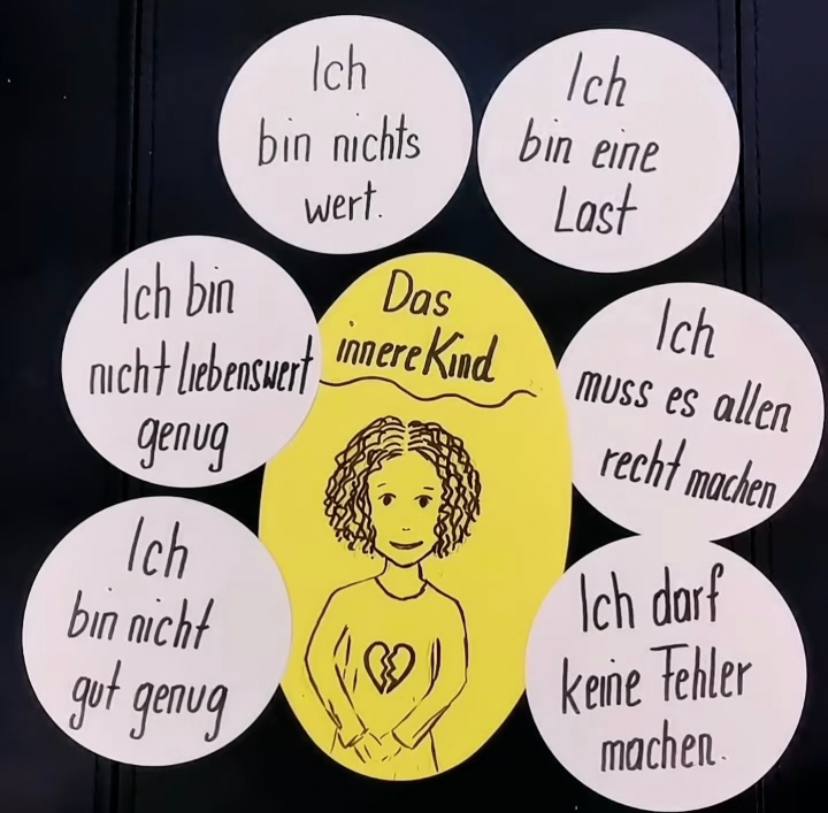 Ich
bin nichts
wert.
Ich
bin eine
Last
Ich bin
nicht liebenswert
genug
Das
innere Kind
Ich
muss es allen
recht machen
Ich
bin nicht
gut genug
Ich darf
keine Fehler
machen.